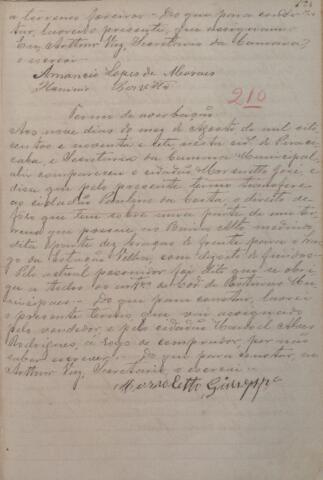 a terrenos foreiros. Do que para constar
tar, lavrei o presente, que assignam.
Eu, Arthur Vaz, Secretario da Camara,
o escrevi.
Amancio Lopes de Moraes
210
Termo de averbação
Aos nove dias do mez de Agosto de mil oito
centos e noventa e sete, nesta cid. de Piraci
caba, e Secretaria da Camara Municipal,
ahi compareceu o cidadão José, e
disse que pelo presente termo transfere
ao cidadão Paulino da Costa, o direito de
foro que tem sobre uma parte de um ter
reno que possue, no Bairro Alto, medindo
dita parte dez braças de frente para o
da Estação Velha, com de fundos.
Pelo actual possuidor foi dito que se obri
ga a todos os do Cod. de Posturas Mu
nicipaes. Do que para constar, lavrei
o presente termo que vai assignado
pelo vendedor e pelo cidadão Manoel Alves
Rodrigues, a rogo do comprador, por não
saber escrever. Do que para constar, eu
Arthur Vaz, Secretario, o escrevi.
Morzoletto Giuseppe